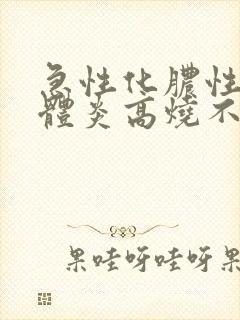 急性化膿性
體炎高燒不
果哇呀哇呀果